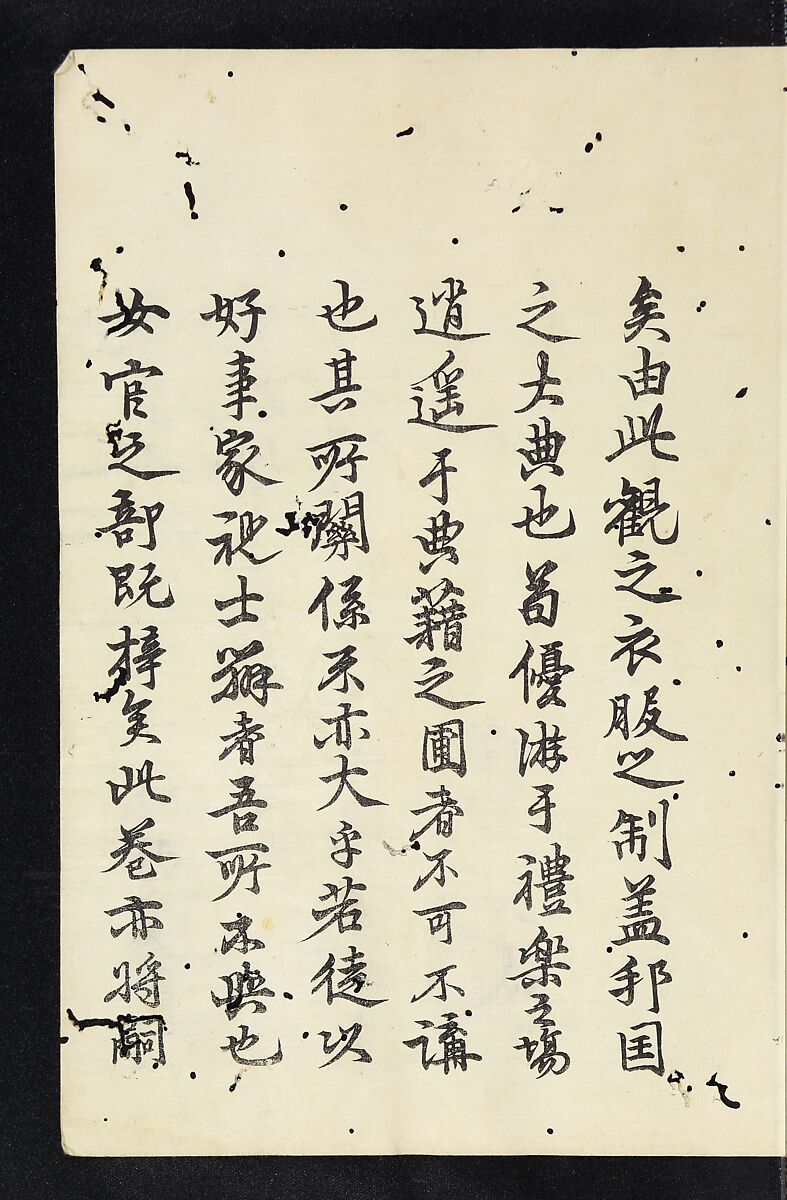 矣由此觀之衣服之制盖邦国
之大典也苟優游于禮樂之場
逍遥于典藉之圃者不可不講
也其所關係不亦大乎若徒以
好事家視士辨者吾所不與也
女官之部既梓矣此巻亦将嗣